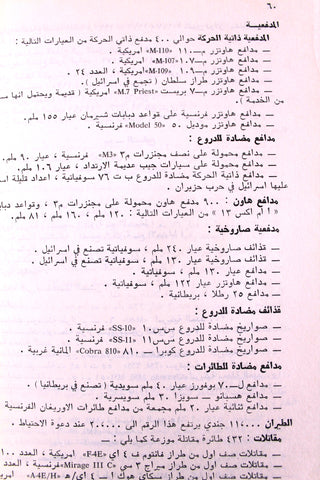 ٦٠
المدفعيـة
المدفعية ذاتية الحركة حوالي ٤٠٠ مدفع ذاتي الحركة من العيارات التالية :
— مدافع هاوتزر م — ١١٠ «M-110» امريكية .
— مدافع هاوتزر م — ١٠٧ «M-107» امريكية .
— مدافع هاوتزر م — ١٠٩ «M-109» امريكية ، العدد ٢٤ .
— مدافع هاوتزر طراز سلطان ( تجمع في اسرائيل ) .
— مدافع هاوتزر م — ٧ بريست «M.7 Priest» امريكية ( قديمة ويحتمل انها
من الخدمة ) .
— مدافع هاوتزر فرنسية على قواعد دبابات شيرمان عيار ١٥٥ ملم .
— مدافع هاوتزر موديل ٥٠ «Model 50» فرنسية .
مدافع مضادة للدروع :
— مدافع محمولة على نصف مجنزرات م٣ «M3» فرنسية ، عيار ٩٠ ملم .
— مدافع محمولة على سيارات جيب عديمة الارتداد ، عيار ١٠٦ ملم .
— مدافع ذاتية الحركة مضادة للدروع ب ت ٧٦ سوفياتية ، اعداد قليلة
عليها اسرائيل في حرب حزيران .
مدافع هاون : ٩٠٠ مدفع هاون محمولة على مجنزرات م٣ ، وقواعد
« ا ام اكس ١٣ » من العيارات التالية : ١٢٠ ملم ، ١٦٠ ملم ، ٨١ ملم .
مدفعية صاروخية :
— قذائف صاروخية عيار ٢٤٠ ملم ، سوفياتية تصنع في اسرائيل .
— قذائف صاروخية عيار ١٣٠ ملم ، سوفياتية تصنع في اسرائيل .
— مدافع عيار ١٣٠ ملم ، سوفياتية .
— مدافع هاوتزر عيار ١٢٢ ملم ، سوفياتية .
— مدافع ٢٥ رطلا ، بريطانية .
قذائف مضادة للدروع :
— صواريخ مضادة للدروع س‌س١٠ «SS-10» فرنسية .
— صواريخ مضادة للدروع س‌س١١ «SS-11» فرنسية .
— صواريخ مضادة للدروع كوبرا — ٨١٠ «Cobra 810» المانية غربية .
مدافع مضادة للطائرات :
— مدافع ل—٧٠ بوفورز عيار ٤٠ ملم سويدية ( تصنع في بريطانيا ) .
— مدافع هسبانو — سويزا ٣٠ ملم سويسرية
— مدافع ثنائية عيار ٢٠ ملم مجمعة من مدافع طائرات الاوريغان الفرنسية
الطيران ١١٬٠٠٠ جندي يرتفع هذا الرقم الى ٢٠٬٠٠٠ عند دعوة الاحتياط .
مقاتلات : ٤٣٢ طائرة مقاتلة موزعة كما يلي :—
— مقاتلات صف اول من طراز فانتوم ف ٤ اي «F4E» امريكية ، العدد
— مقاتلات صف اول من طراز ميراج ٣ سي «Mirage III C» فرنسية ، العدد
— مقاتلات صف اول من طراز سكاي هوك ا — ٤ اي/ه «A-4E/H»